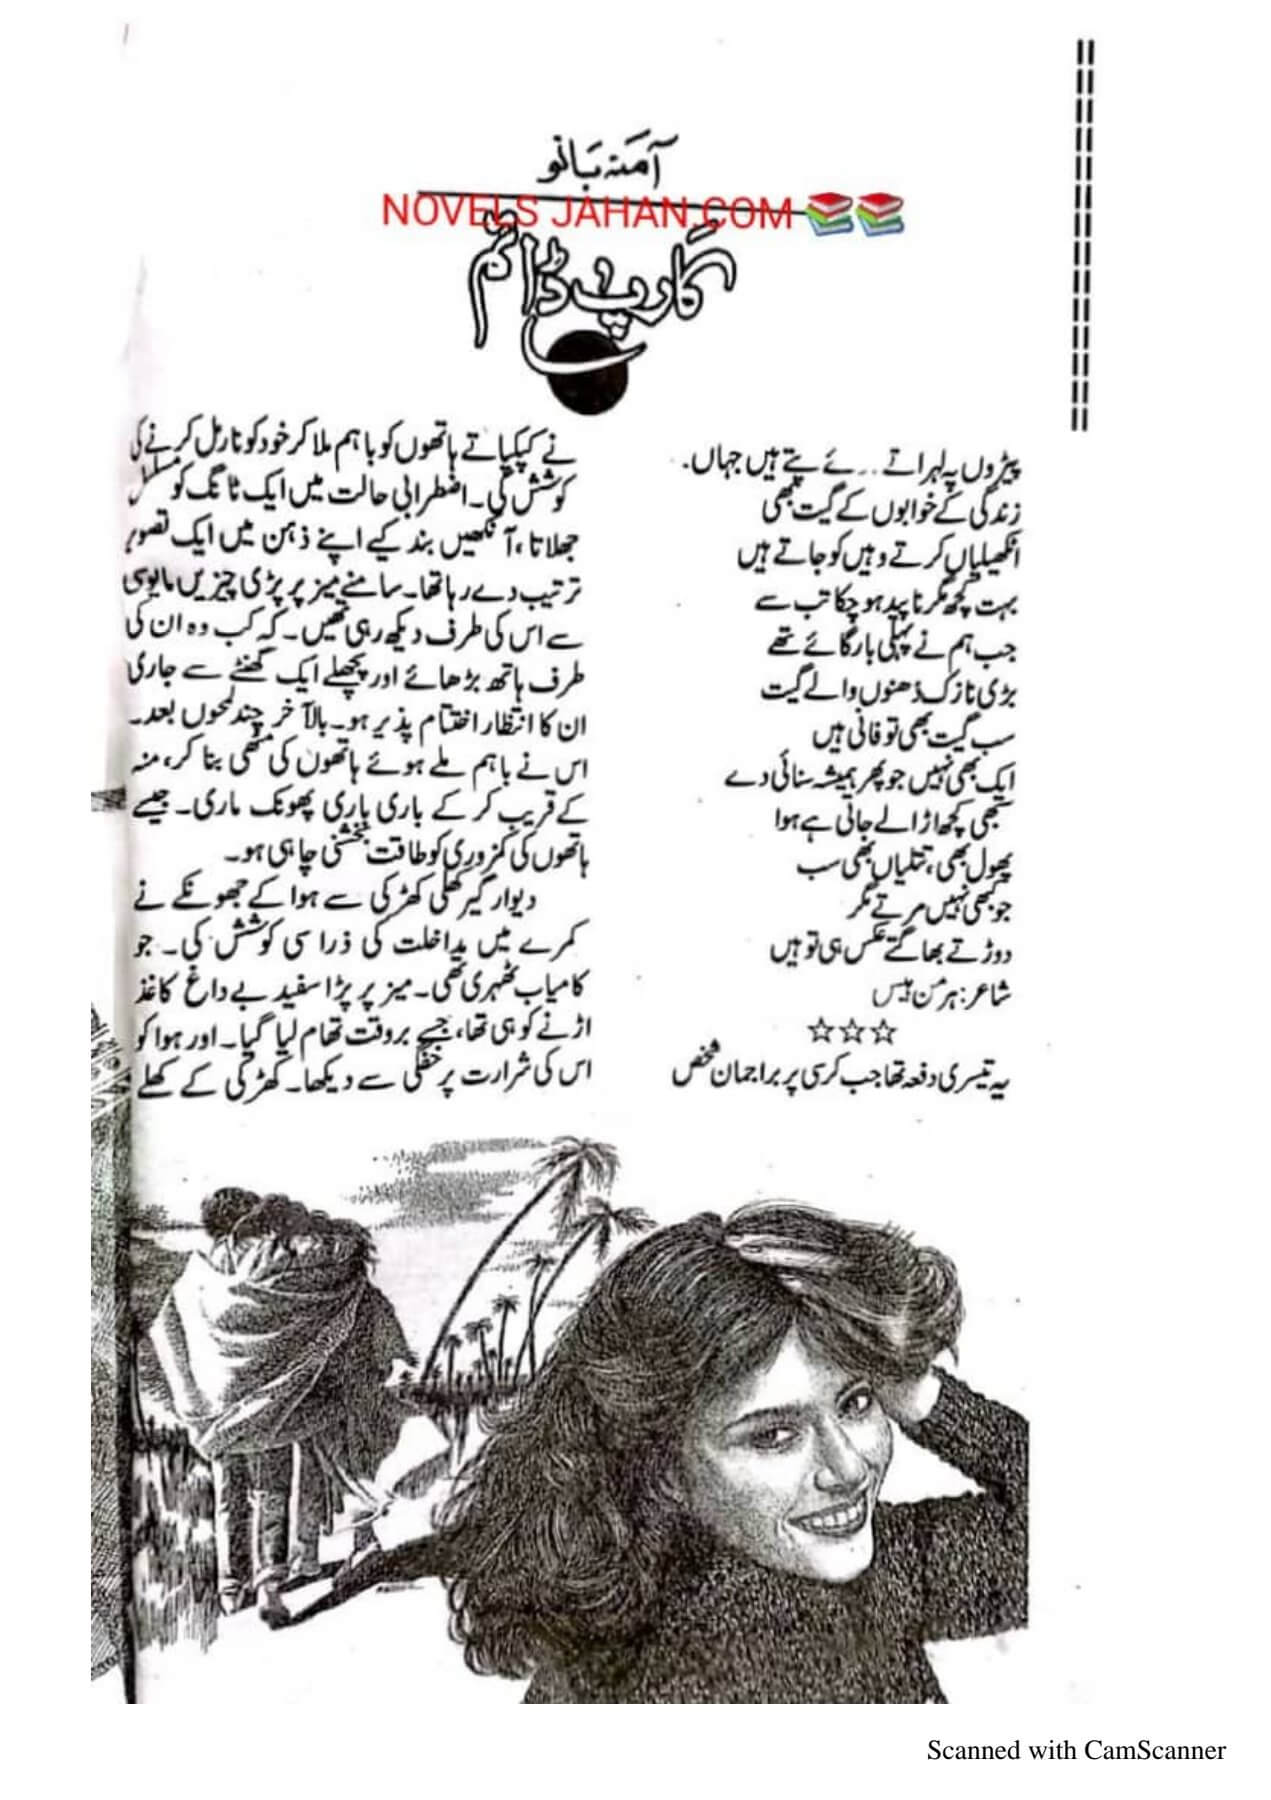 آمنہ بانو
NOVELS JAHAN.COM
کارپے ڈائم
پیڑوں پہ لہراتے ۔۔۔ ئے پتے ہیں جہاں۔
زندگی کے خوابوں کے گیت بھی
اٹکھیلیاں کرتے وہیں کو جاتے ہیں
بہت کچھ مگر ناپید ہو چکا تب سے
جب ہم نے پہلی بار گائے تھے
بڑی نازک دُھنوں والے گیت
سب گیت بھی تو فانی ہیں
ایک بھی نہیں جو پھر ہمیشہ سنائی دے
سبھی کچھ اڑا لے جاتی ہے ہوا
پھول بھی، تتلیاں بھی سب
جو کبھی نہیں مرتے مگر
دوڑتے بھاگتے عکس ہی تو ہیں
شاعر: ہرمن ہیس
☆☆☆
یہ تیسری دفعہ تھا جب کرسی پر براجمان شخص
نے کپکپاتے ہاتھوں کو باہم ملا کر خود کو نارمل کرنے کی
کوشش کی۔ اضطرابی حالت میں ایک ٹانگ کو مسلسل
جھلاتا، آنکھیں بند کیے اپنے ذہن میں ایک تصویر
ترتیب دے رہا تھا۔ سامنے میز پر پڑی چیزیں مایوسی
سے اس کی طرف دیکھ رہی تھیں۔ کہ کب وہ ان کی
طرف ہاتھ بڑھائے اور پچھلے ایک گھنٹے سے جاری
ان کا انتظار اختتام پذیر ہو۔ بالآخر چند لمحوں بعد۔
اس نے باہم ملے ہوئے ہاتھوں کی مٹھی بنا کر، منہ
کے قریب کر کے باری باری پھونک ماری۔ جیسے
ہاتھوں کی کمزوری کو طاقت بخشنی چاہی ہو۔
دیوار گیر کھلی کھڑکی سے ہوا کے جھونکے نے
کمرے میں مداخلت کی ذرا سی کوشش کی۔ جو
کامیاب ٹھہری تھی۔ میز پر پڑا سفید بے داغ کاغذ
اڑنے کو ہی تھا، جسے بروقت تھام لیا گیا۔ اور ہوا کو
اس کی شرارت پر خفگی سے دیکھا۔ کھڑکی کے کھلے
Scanned with CamScanner